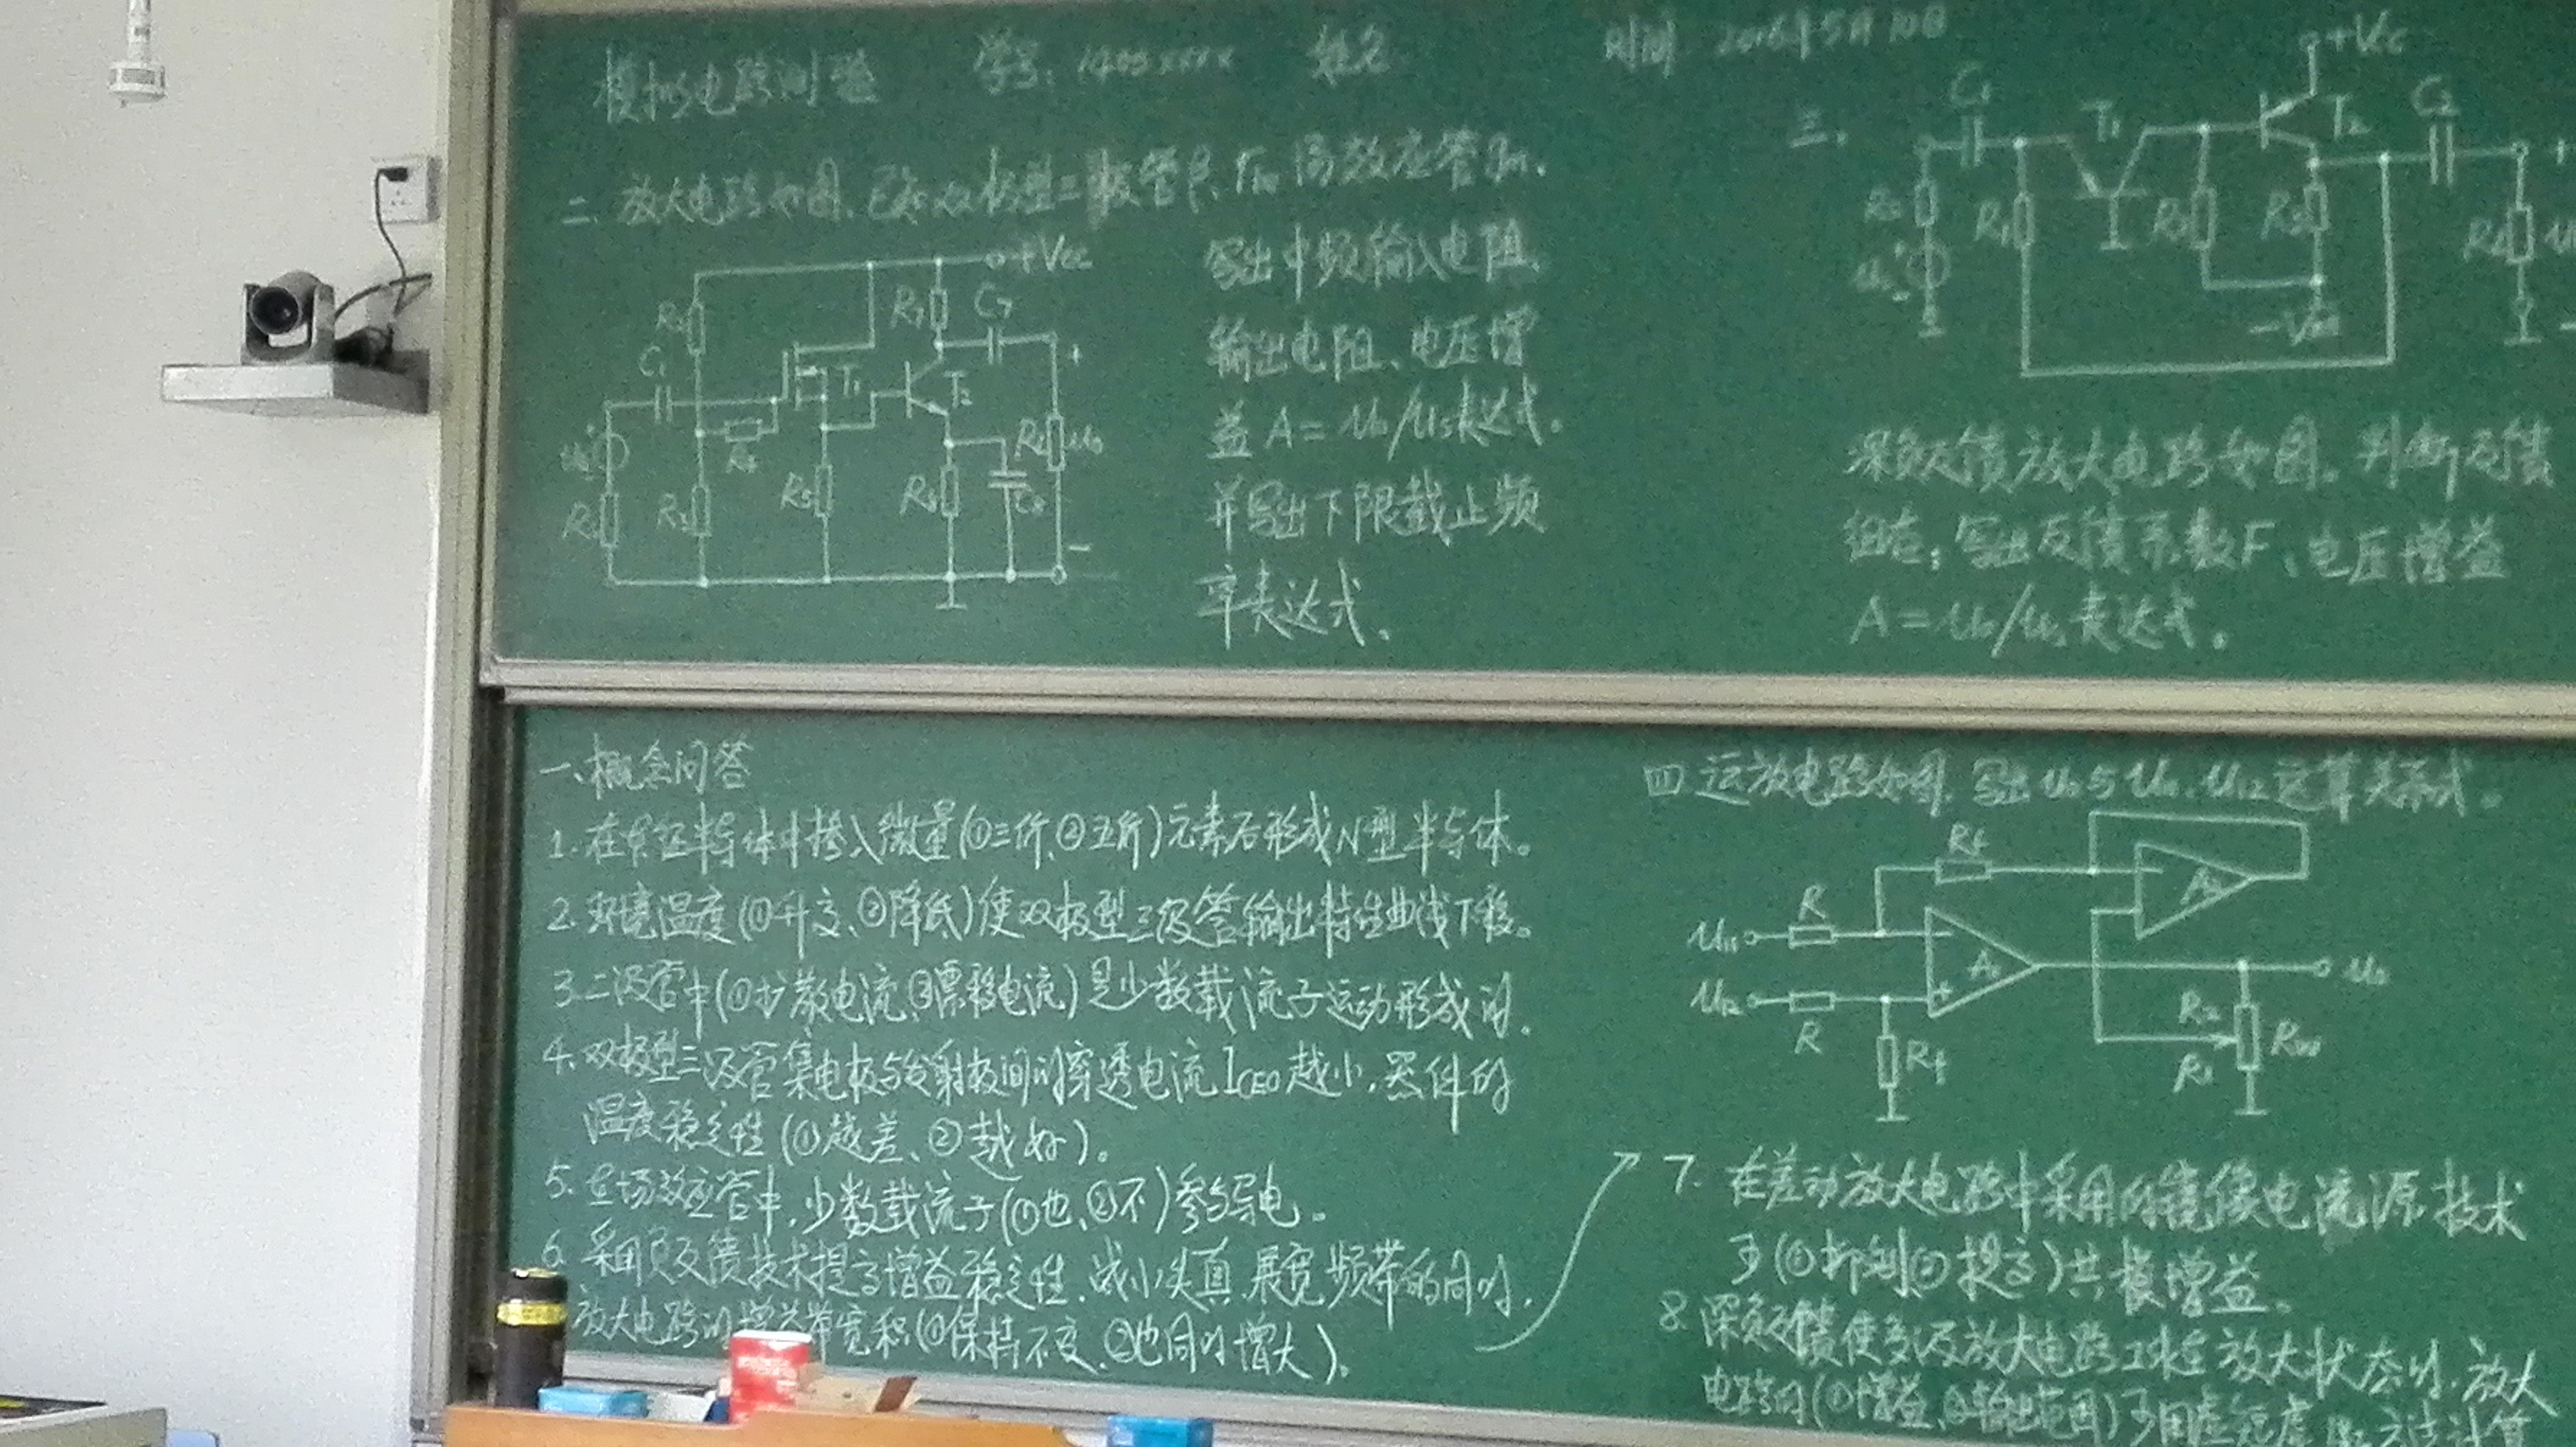 模拟电路测验 学号：1405xxxx 姓名 时间 2016年5月10日
二、放大电路如图，已知双极型三极管β、rbe 场效应管gm、
写出中频输入电阻、
输出电阻、电压增
益 A = uo/us表达式。
并写出下限截止频
率表达式。
+Vcc
R1
R7
C7
C1
T1
T2
us
R4
RL
uo
R2
R5
C8
三、
+Vcc
C1
T1
T2
C2
Rs
R1
R2
R3
RL
us
-VEE
深负反馈放大电路如图。判断反馈
组态；写出反馈系数F、电压增益
A = uo/us表达式。
一、概念问答
1. 在本征半导体中掺入微量(①三价、②五价)元素后形成N型半导体。
2. 环境温度(①升高、②降低)使双极型三极管输出特性曲线下移。
3. 二极管中(①扩散电流、②漂移电流)是少数载流子运动形成的。
4. 双极型三极管集电极与发射极间的穿透电流ICEO越小，器件的
温度稳定性(①越差、②越好)。
5. 在场效应管中，少数载流子(①也、②不)参与导电。
6. 采用负反馈技术提高增益稳定性、减小失真、展宽频带的同时，
放大电路的增益带宽积(①保持不变、②也同时增大)。
四、运放电路如图，写出uo与ui1、ui2运算关系式。
Rf
A2
R
ui1
A1
uo
ui2
R
Rf
R2
Rw
R1
7. 在差动放大电路中采用的镜像电流源技术
可(①抑制②提高)共模增益。
8. 深负反馈使多级放大电路工作在放大状态时，放大
电路的(①增益、②输出范围)可用虚短虚断方法计算